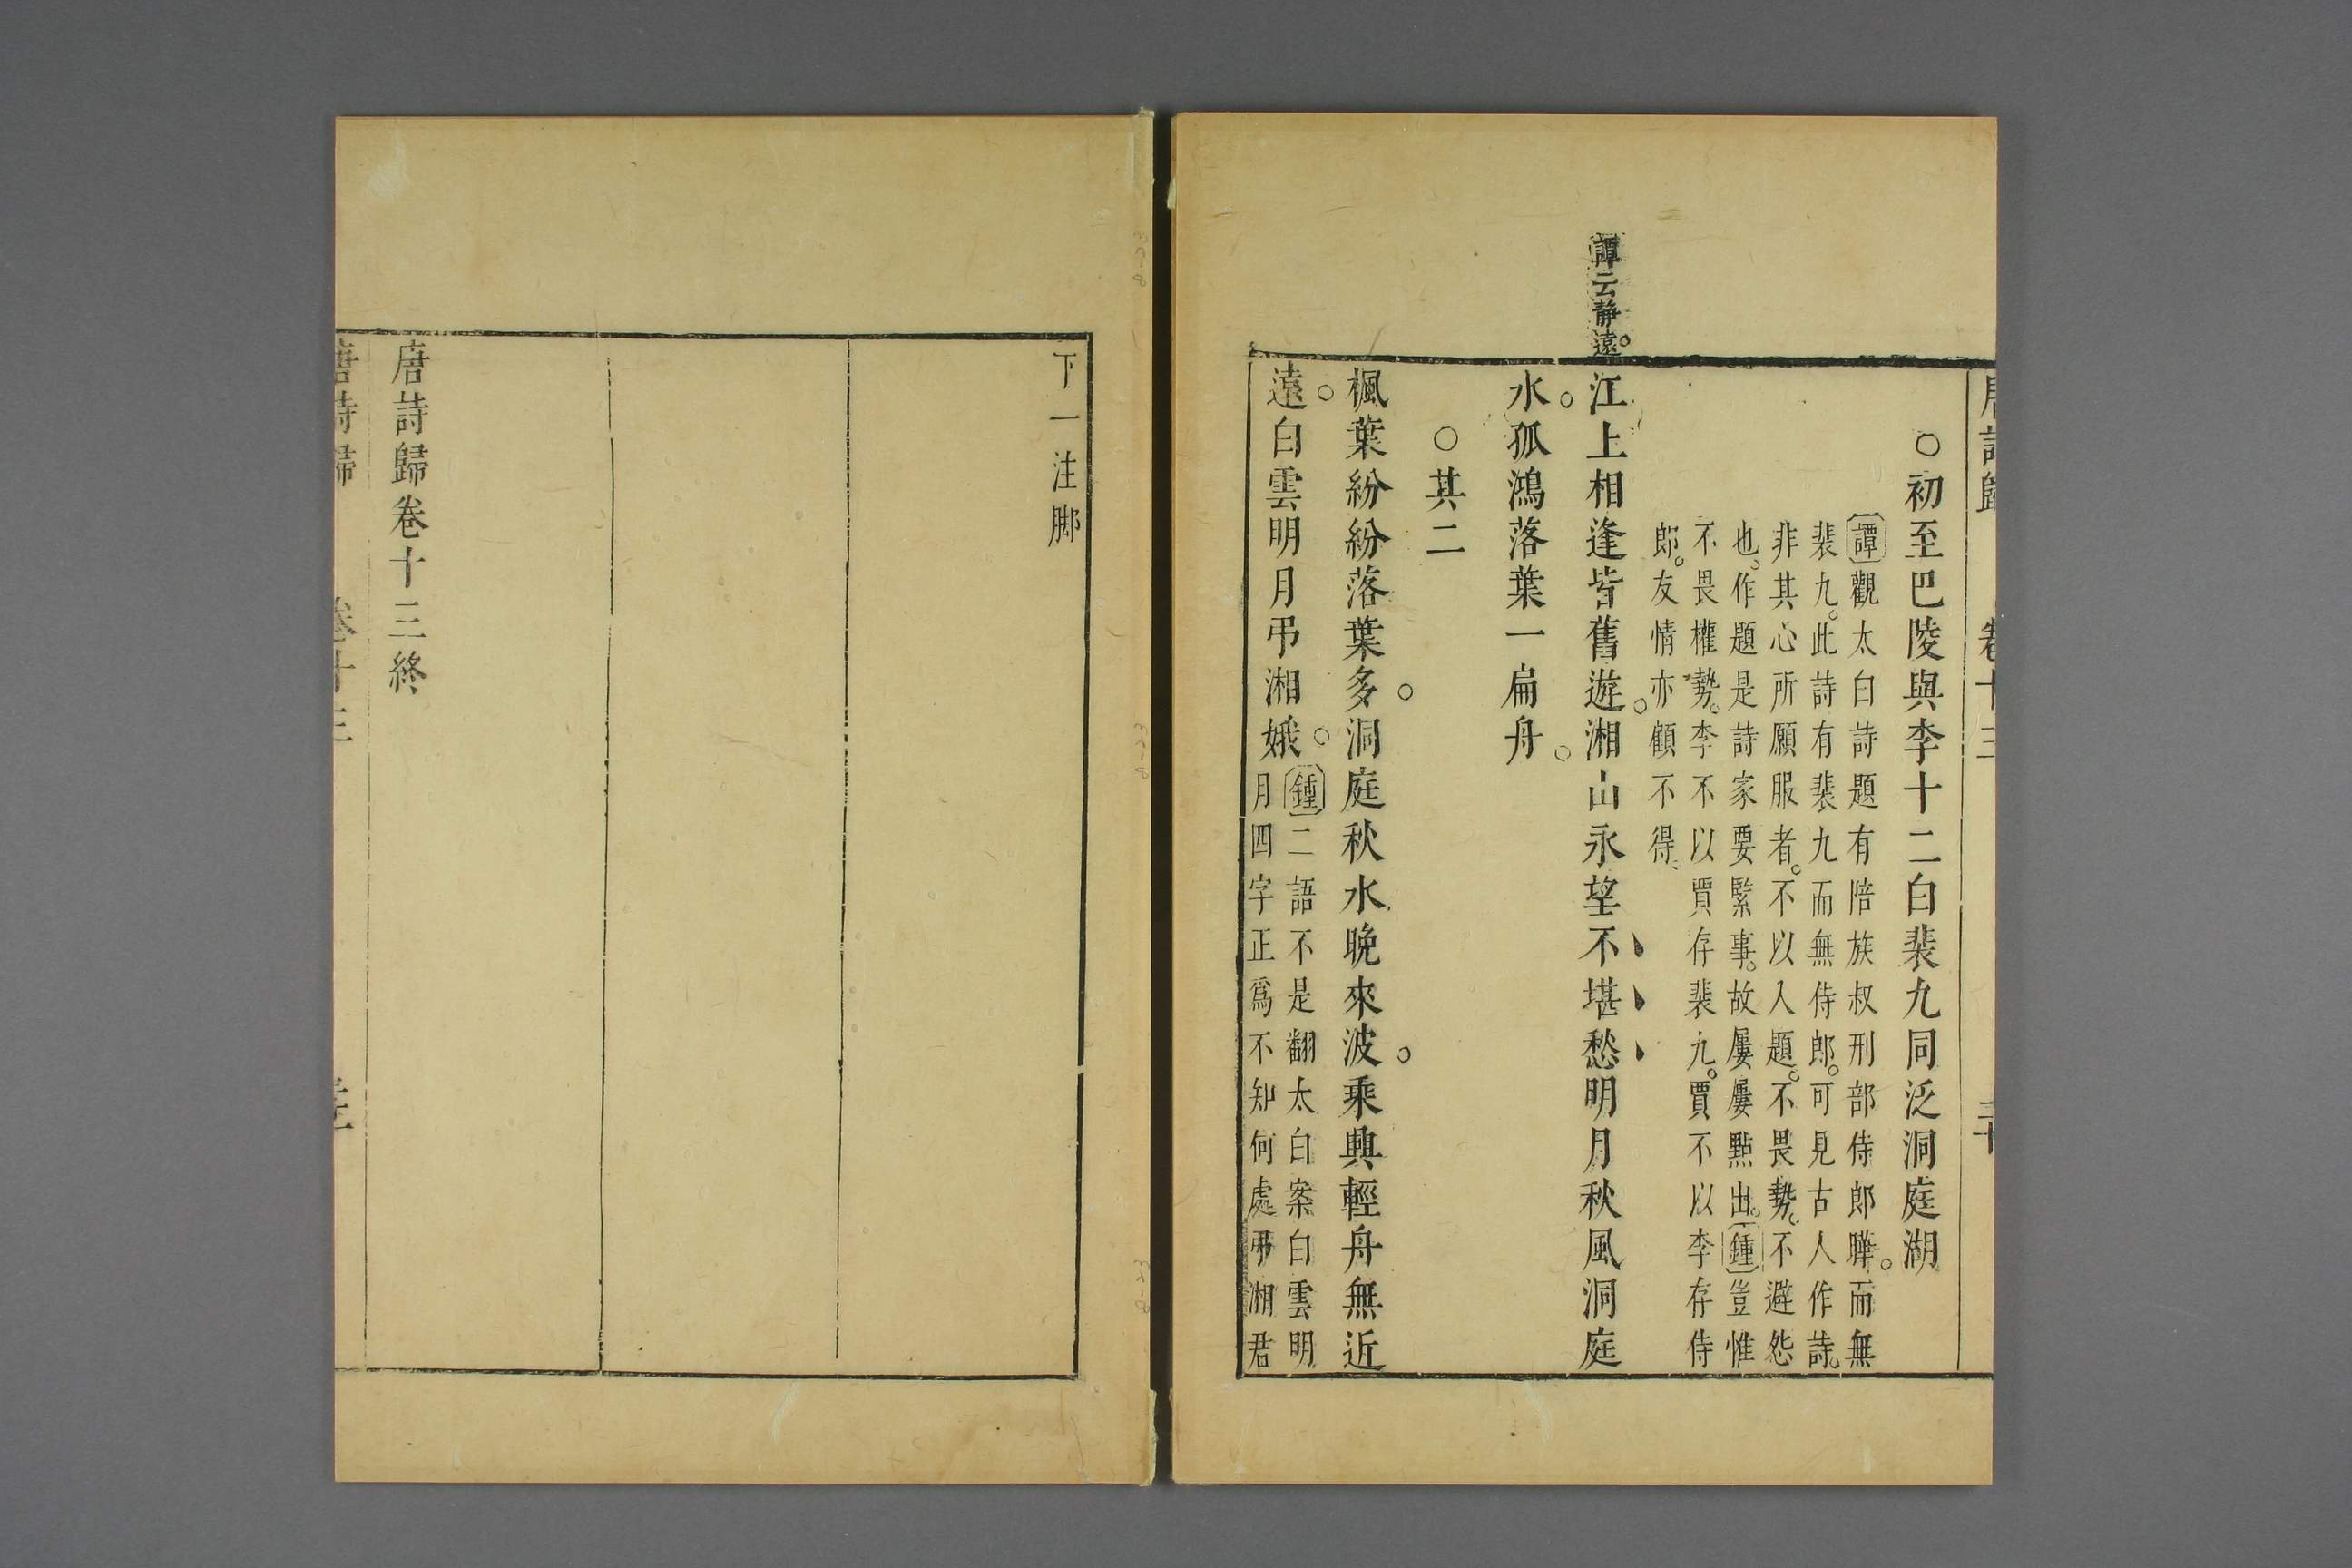 唐詩歸 卷十三 二十
○初至巴陵與李十二白裴九同泛洞庭湖
譚觀太白詩題有陪族叔刑部侍郎曄。而無
裴九。此詩有裴九而無侍郎。可見古人作詩。
非其心所願服者。不以人題。不畏勢。不避怨
也。作題是詩家要緊事。故屢屢點出。鍾豈惟
不畏權勢。李不以賈存裴九。賈不以李存侍
郎。友情亦顧不得、
譚云靜遠。
江上相逢皆舊遊。湘山永望不堪愁明月秋風洞庭
水。孤鴻落葉一扁舟。
○其二
楓葉紛紛落葉多。洞庭秋水晚來波。乘興輕舟無近
遠。白雲明月弔湘娥。
鍾二語不是翻太白案白雲明
月四字正爲不知何處弔湘君
下一注脚
唐詩歸卷十三終
唐詩歸 卷十三